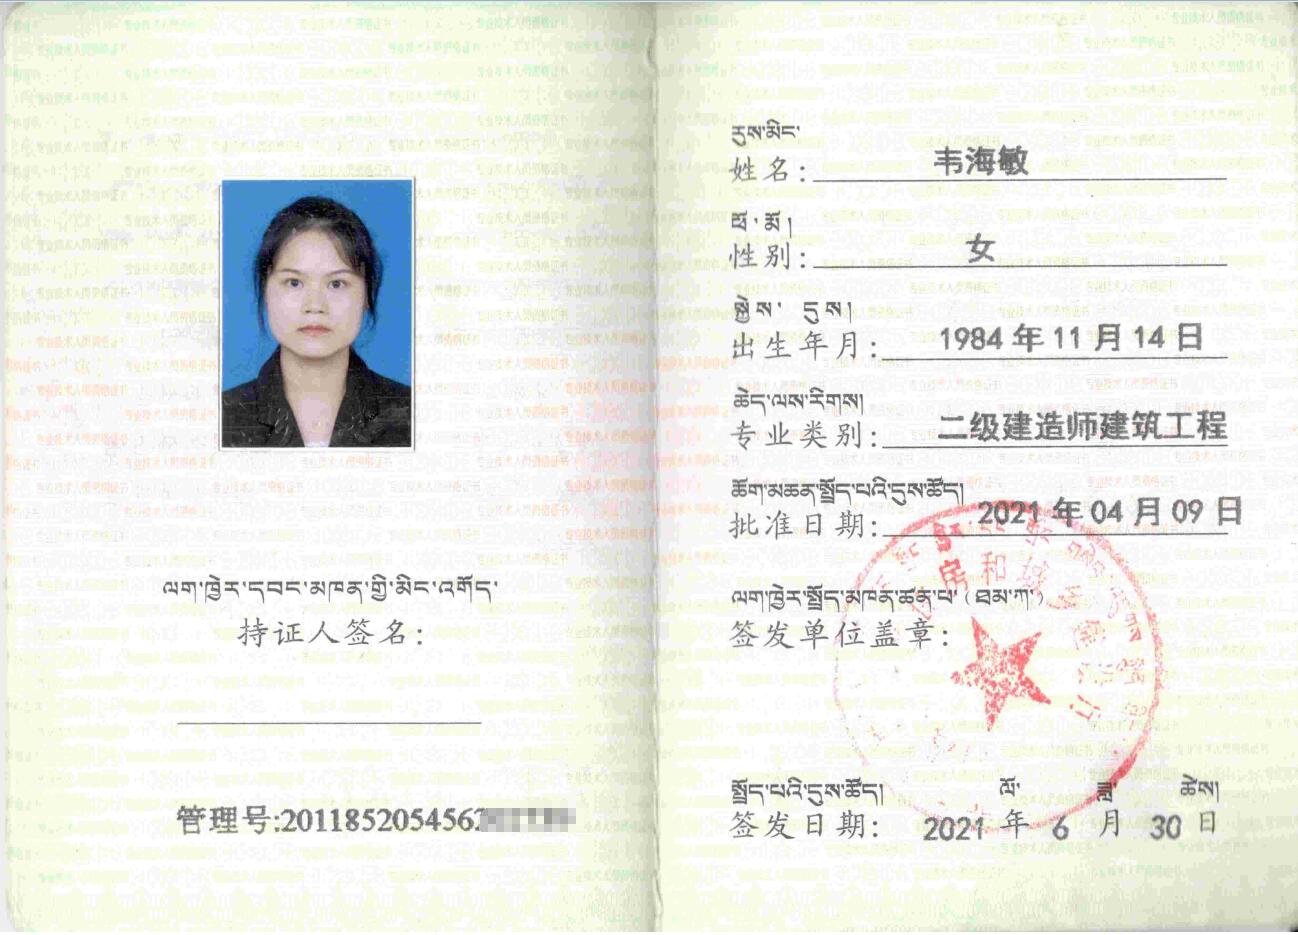 ལག་ཁྱེར་དབང་མཁན་གྱི་མིང་འགོད་
持证人签名:
管理号:201185205456
རུས་མིང་
姓名: 韦海敏
ཕོ་མོ།
性别: 女
སྐྱེས་ དུས།
出生年月: 1984年11月14日
ཆེད་ལས་རིགས།
专业类别: 二级建造师建筑工程
ཆོག་མཆན་སྤྲོད་པའི་དུས་ཚོད།
批准日期: 2021年04月09日
ལག་ཁྱེར་སྤྲོད་མཁན་ཚན་པ་(ཐམ་ཀ་)
签发单位盖章:
房和城
སྤྲོད་པའི་དུས་ཚོད། ལོ་ ཟླ་ ཚེས།
签发日期: 2021年6月30日